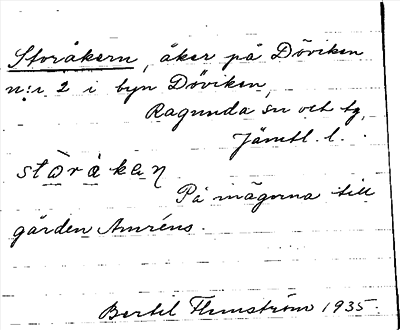 Storåkern, åker på Döviken
n:r 2 i byn Döviken,
Ragunda sn och tg,
Jämtl. l.
stòrákaɳ
På mägerna till
gården Amréns.
Bertel Flemström 1935.